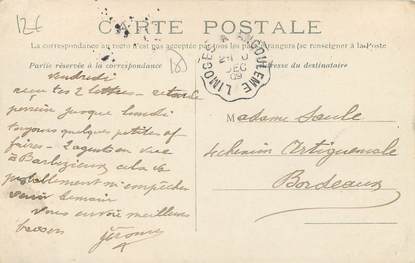 12€
CARTE POSTALE
La correspondance au recto n'est pas acceptée par tous les pays étrangers (se renseigner à la Poste
Partie réservée à la correspondance
Adresse du destinataire
LIMOGES A ANGOULEME
DEC
09
Vendredi
2 lettres
jusque lundi
toujours quelques petites af
faires - 2 agents en vue
à Barbezieux cela va
probablement m'empêcher
venir demain
vous envoie meilleurs
baisers
Jérome
Madame Soule
4 chemin Artiguemale
Bordeaux